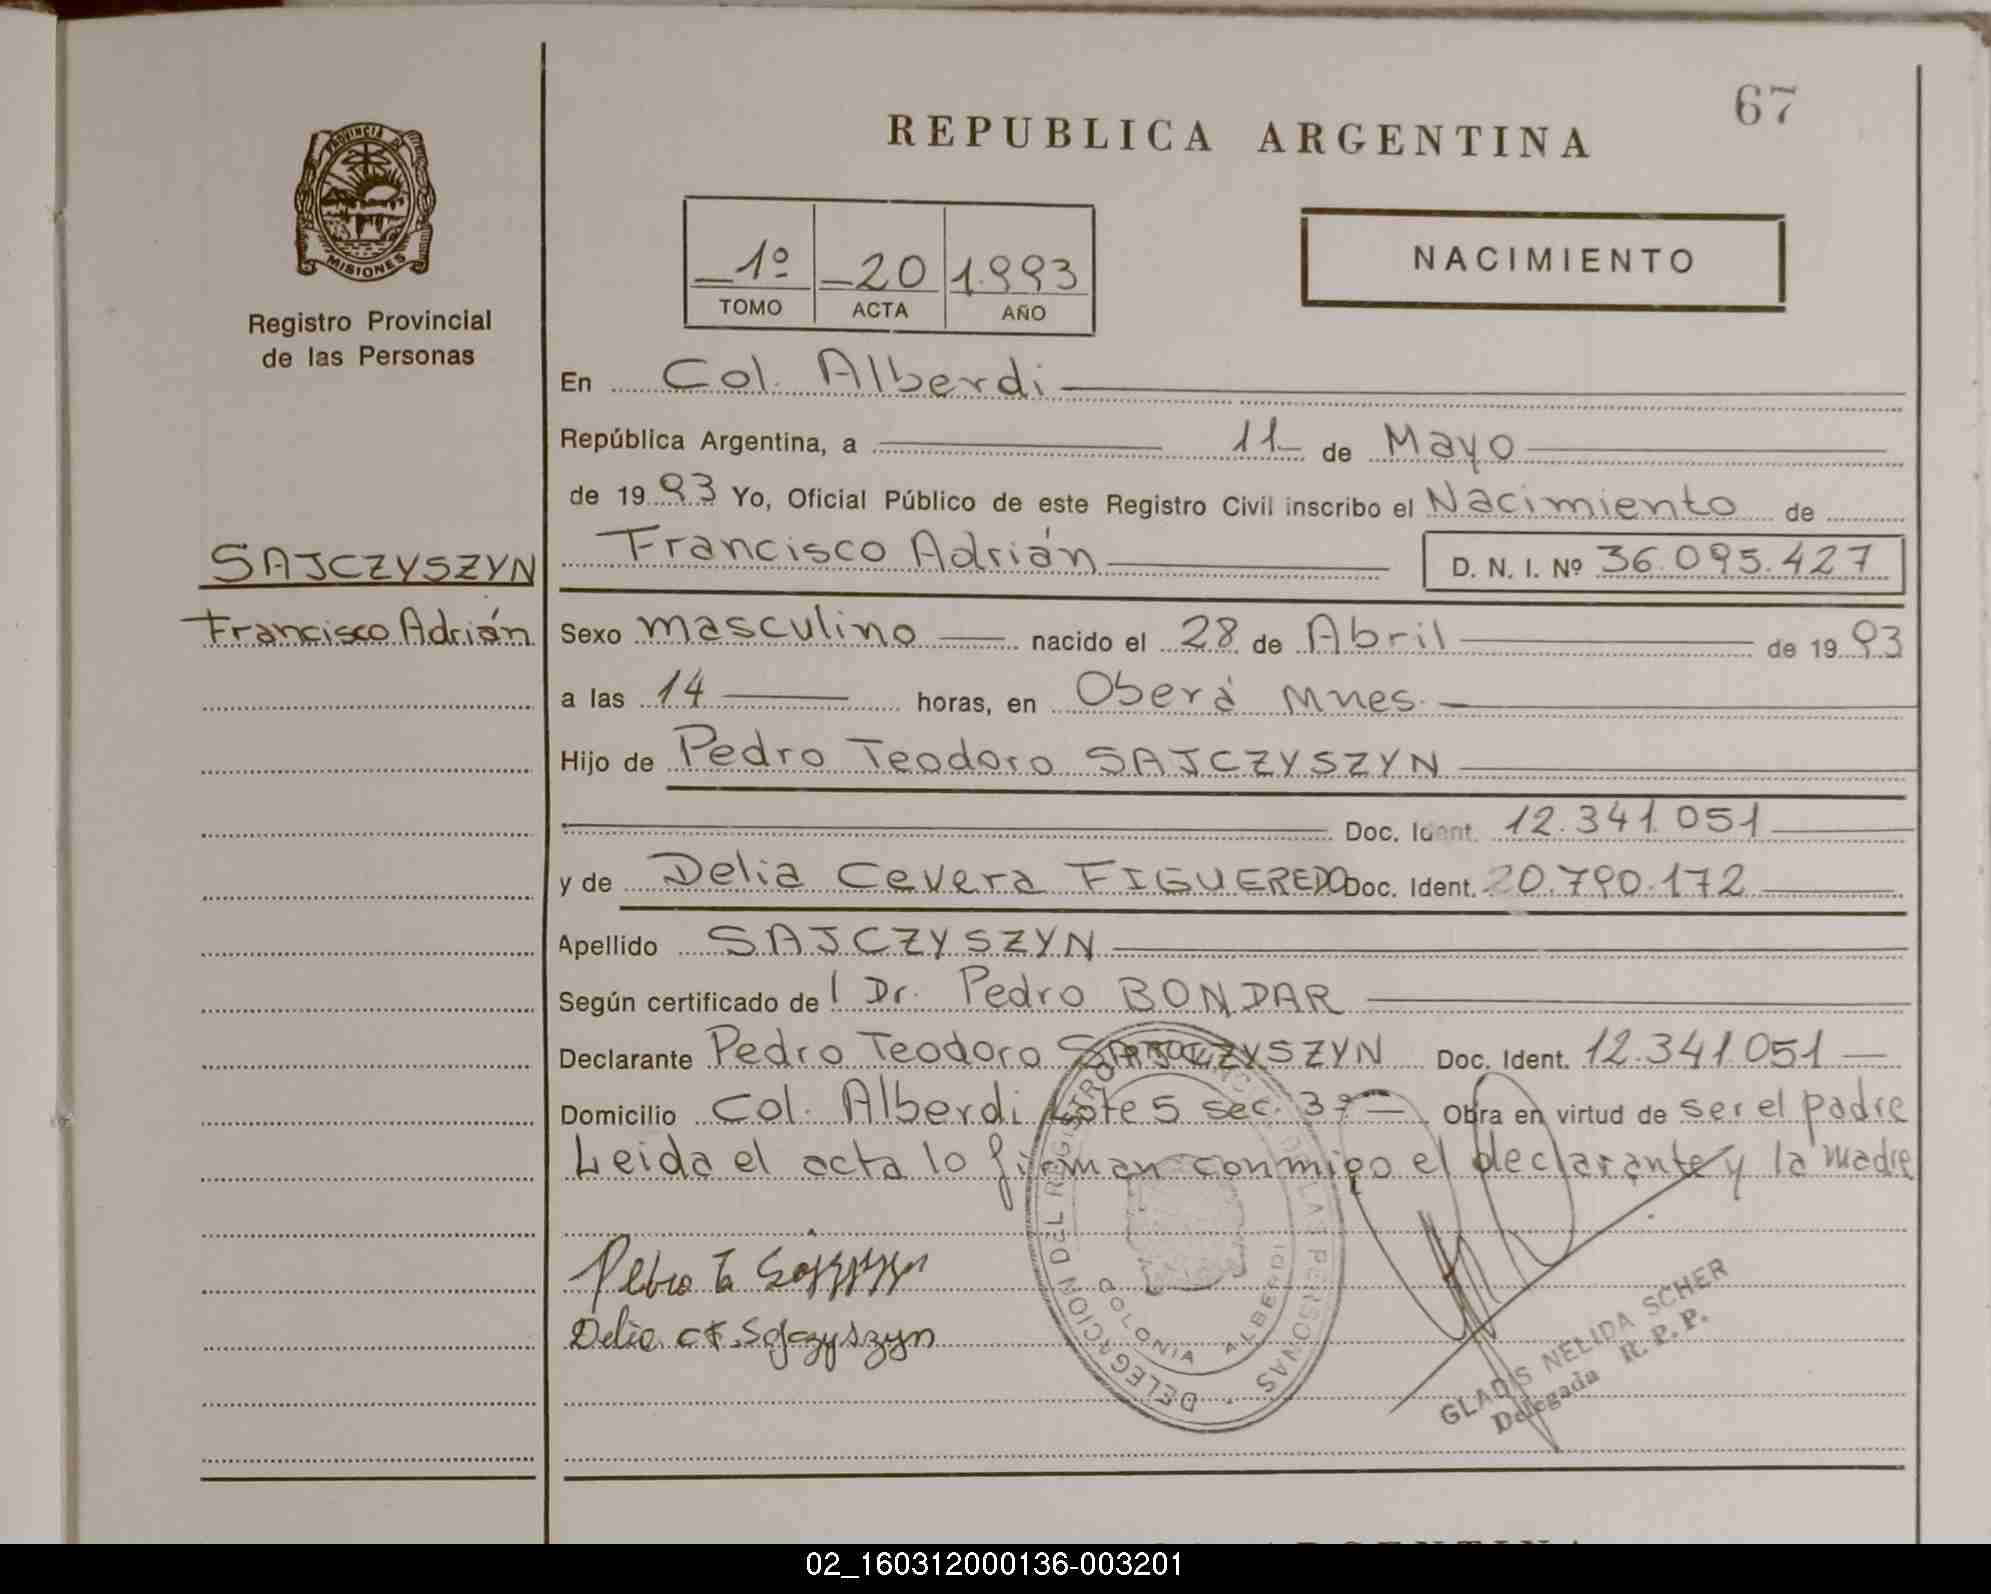 67
REPUBLICA ARGENTINA
PROVINCIA DE
MISIONES
Registro Provincial
de las Personas
1º -20 1.993
TOMO ACTA AÑO
NACIMIENTO
En Col. Alberdi
República Argentina, a 11- de Mayo
de 1993 Yo, Oficial Público de este Registro Civil inscribo el Nacimiento de
Francisco Adrián D. N. I. Nº 36.095.427
SAJCZYSZYN
Francisco Adrián
Sexo masculino nacido el 28 de Abril de 1993
a las 14 horas, en Oberá Mnes.
Hijo de Pedro Teodoro SAJCZYSZYN
Doc. Ident. 12.341.051
y de Delia Cevera FIGUEREDO Doc. Ident. 20.790.172
Apellido SAJCZYSZYN
Según certificado de l Dr. Pedro BONDAR
Declarante Pedro Teodoro SAJCZYSZYN Doc. Ident. 12.341.051
Domicilio Col. Alberdi Lote 5 sec. 3ª Obra en virtud de ser el padre
Leida el acta lo firman conmigo el declarante y la madre
Pedro T.
Delia C F. Sajczyszyn
DELEGACION DEL REGISTRO PROVINCIAL DE LAS PERSONAS
COLONIA ALBERDI
GLADIS NELIDA SCHER
Delegada R. P. P.
02_160312000136-003201